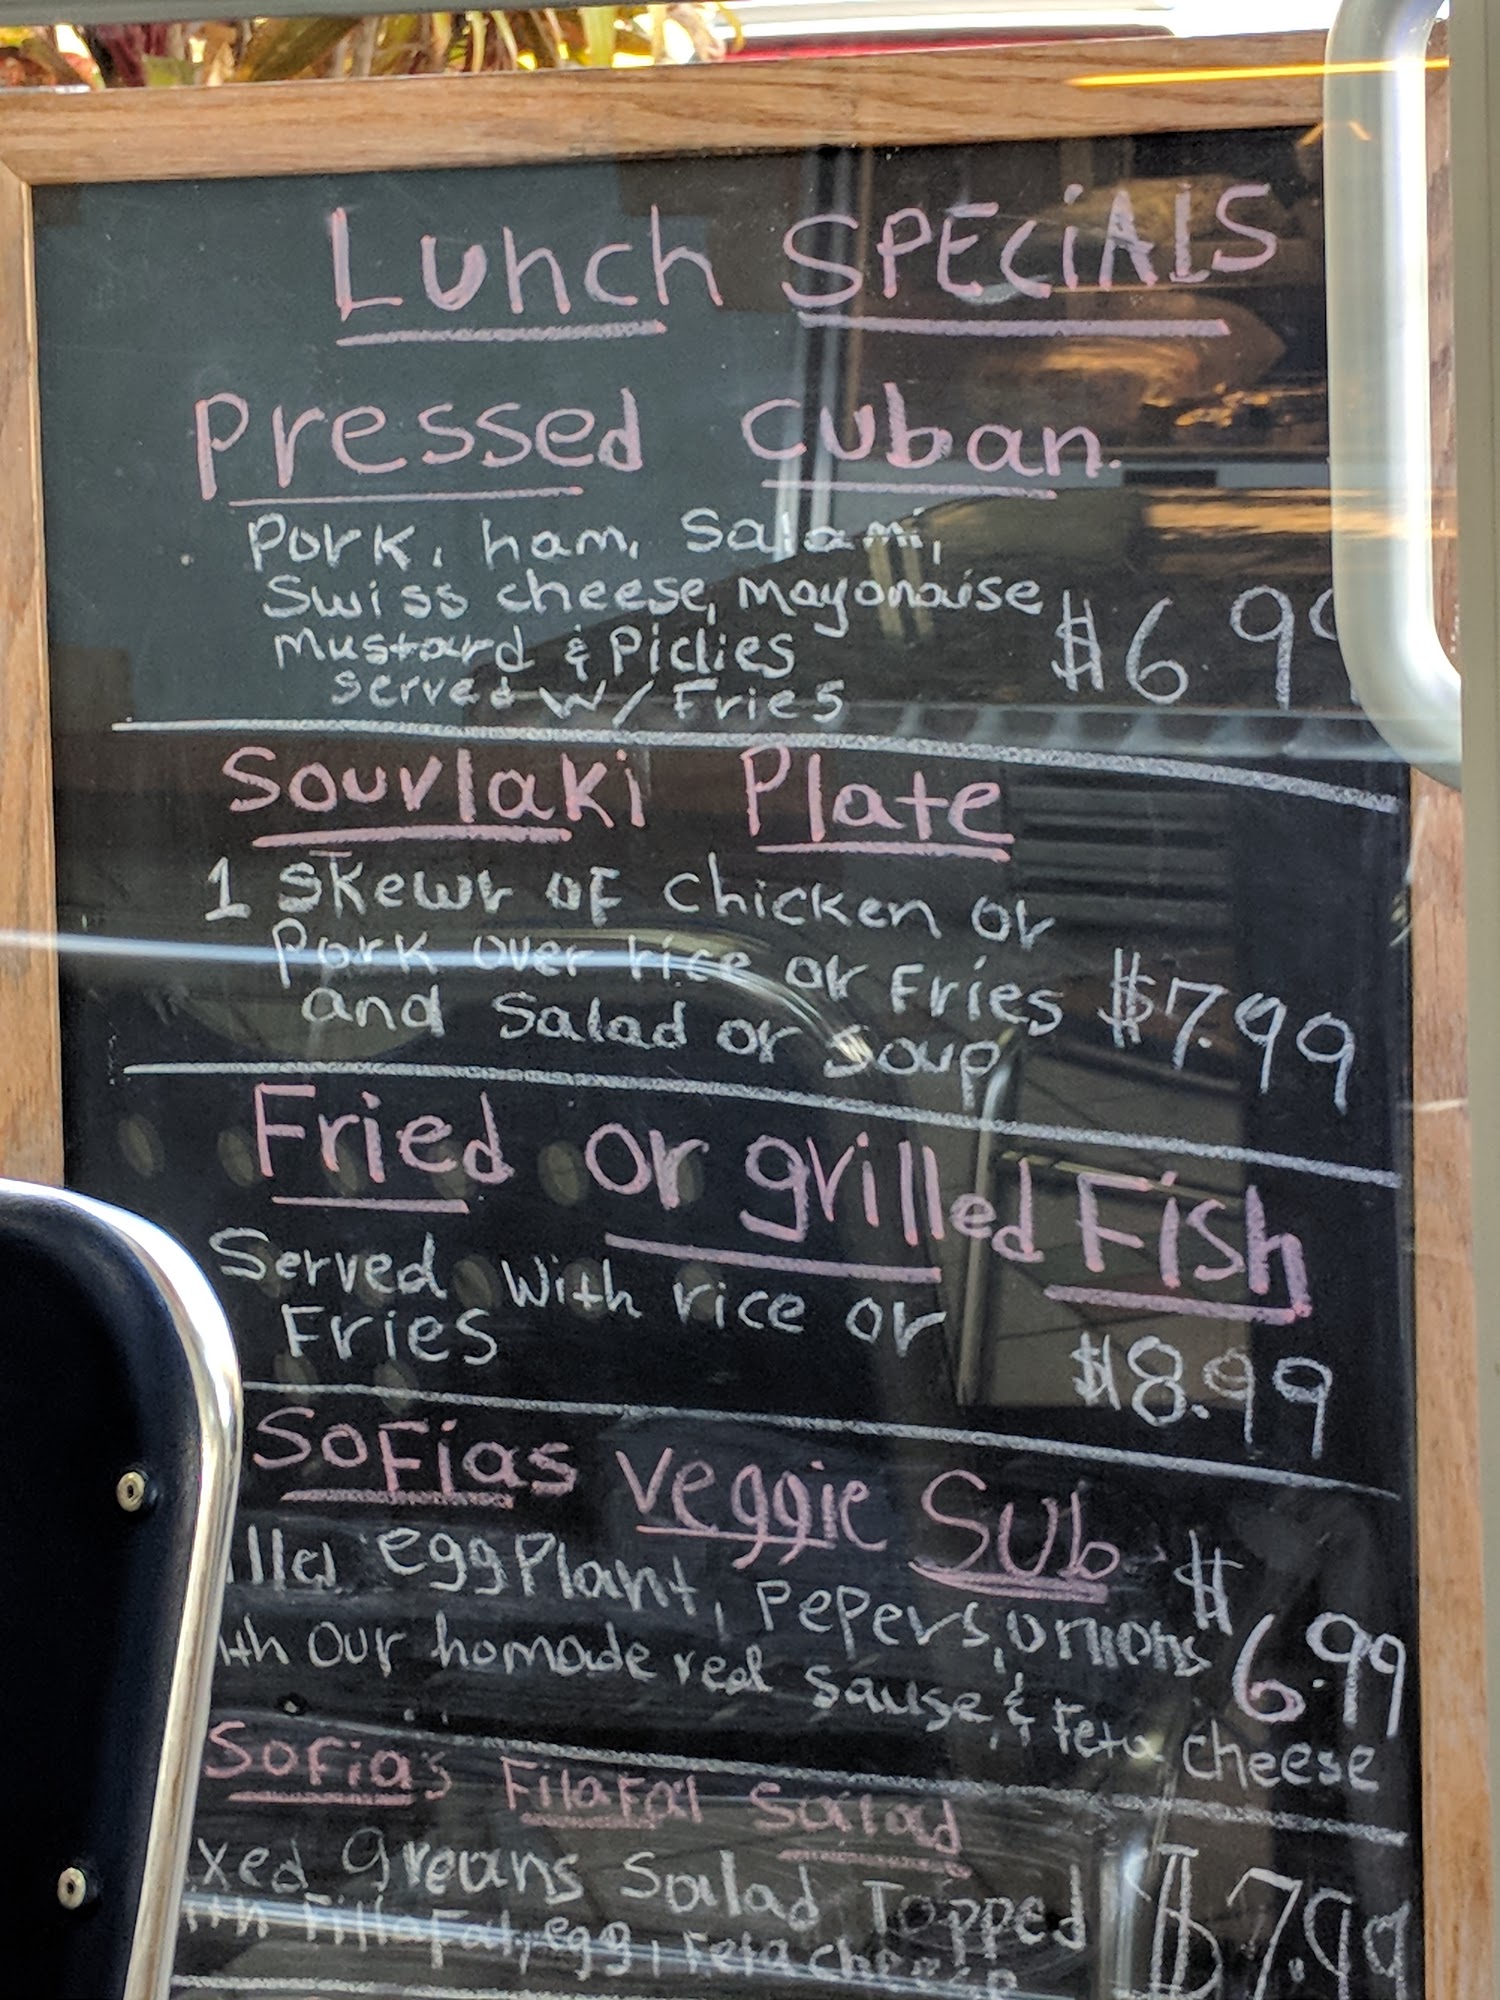 Lunch SPECiAlS
Pressed cuban
Pork, ham, Salami,
Swiss cheese, mayonaise
Mustard & Piclies
served w/ Fries
$6.99
Souvlaki Plate
1 Skewr of chicken or
Pork over rice or Fries
and Salad or Soup
$7.99
Fried or grilled Fish
Served with rice or
Fries
$8.99
Sofias veggie Sub
eggPlant, Pepers, onions
our homade red sause & Feta cheese
$6.99
Sofias Filafal Salad
greans Salad Topped
Fillafal, egg, Feta cheese
$7.99